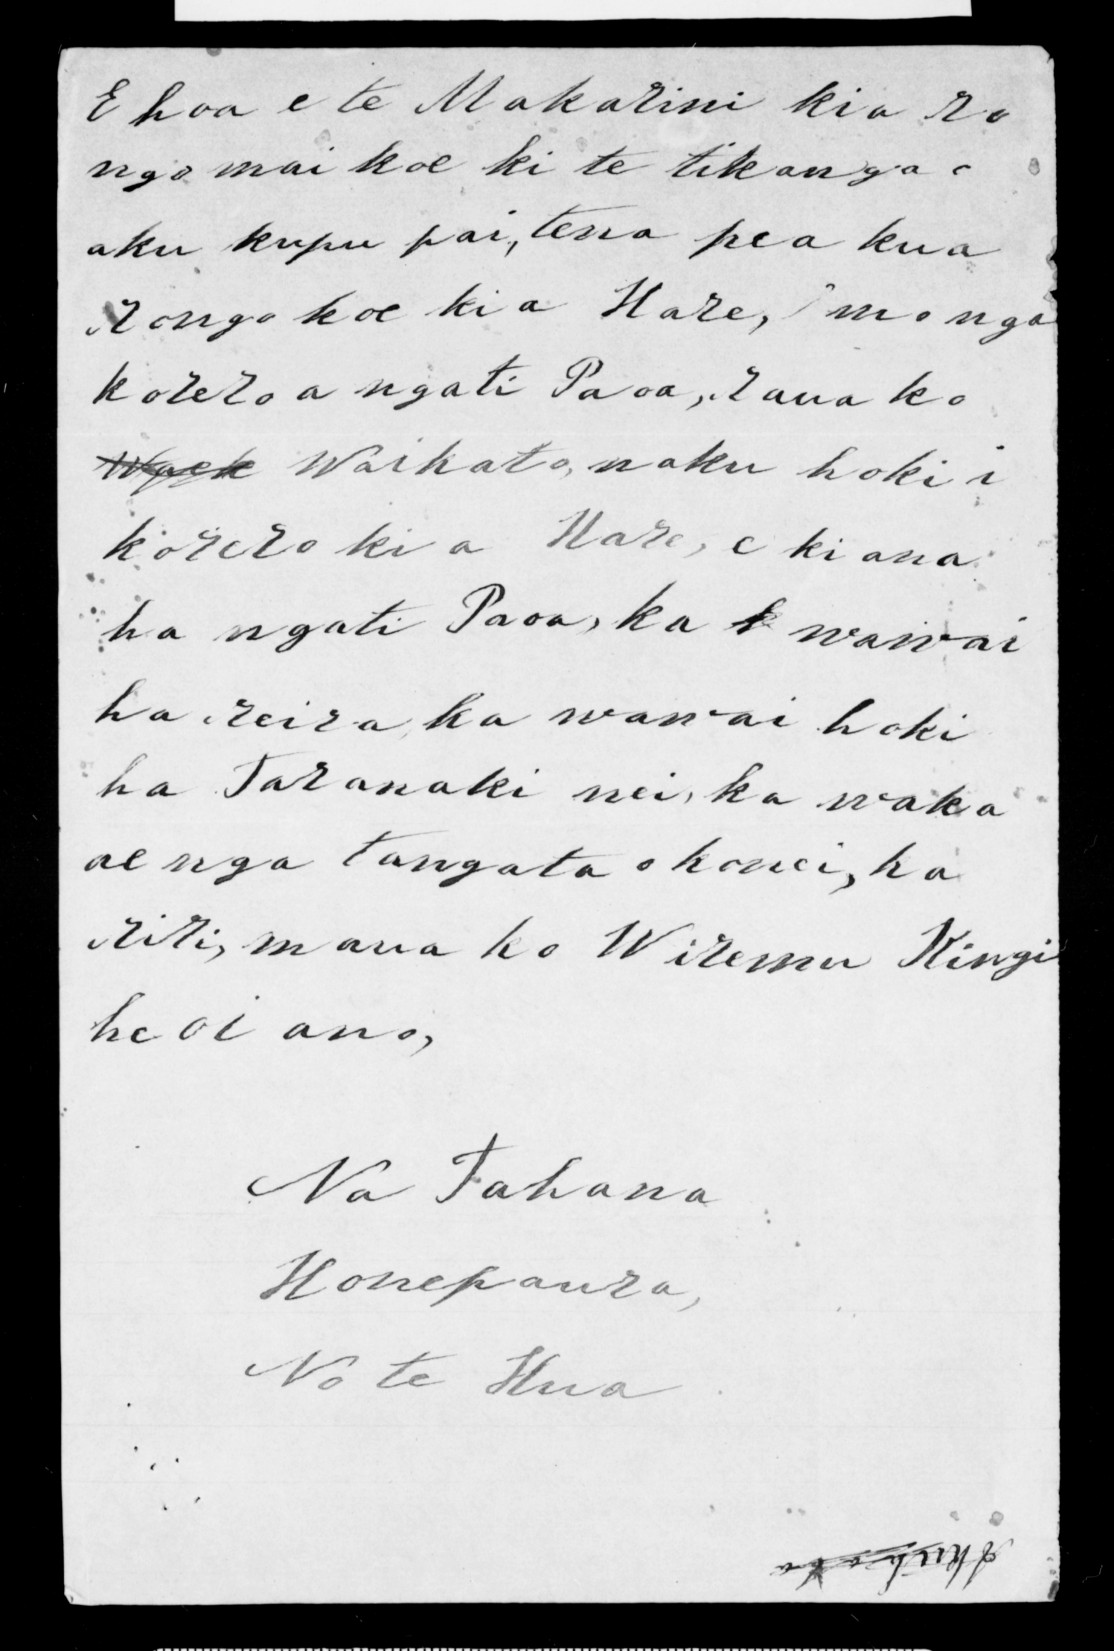 E hoa e te Makarini kia ro
ngo mai koe ki te tikanga o
aku kupu pai, tena pea kua
rongo koe ki a Hare, mo nga
korero a ngati Paoa, raua ko
Waikato, naku hoki i
korero ki a Hare, e ki ana
ha ngati Paoa, ka wawai
ha reira, ka wawai hoki
ha Taranaki nei, ka waka
ae nga tangata o konei, ka
riri, maua ko Wiremu Kingi
heoi ano,
Na Tahana
Honepaura,
No te Hua